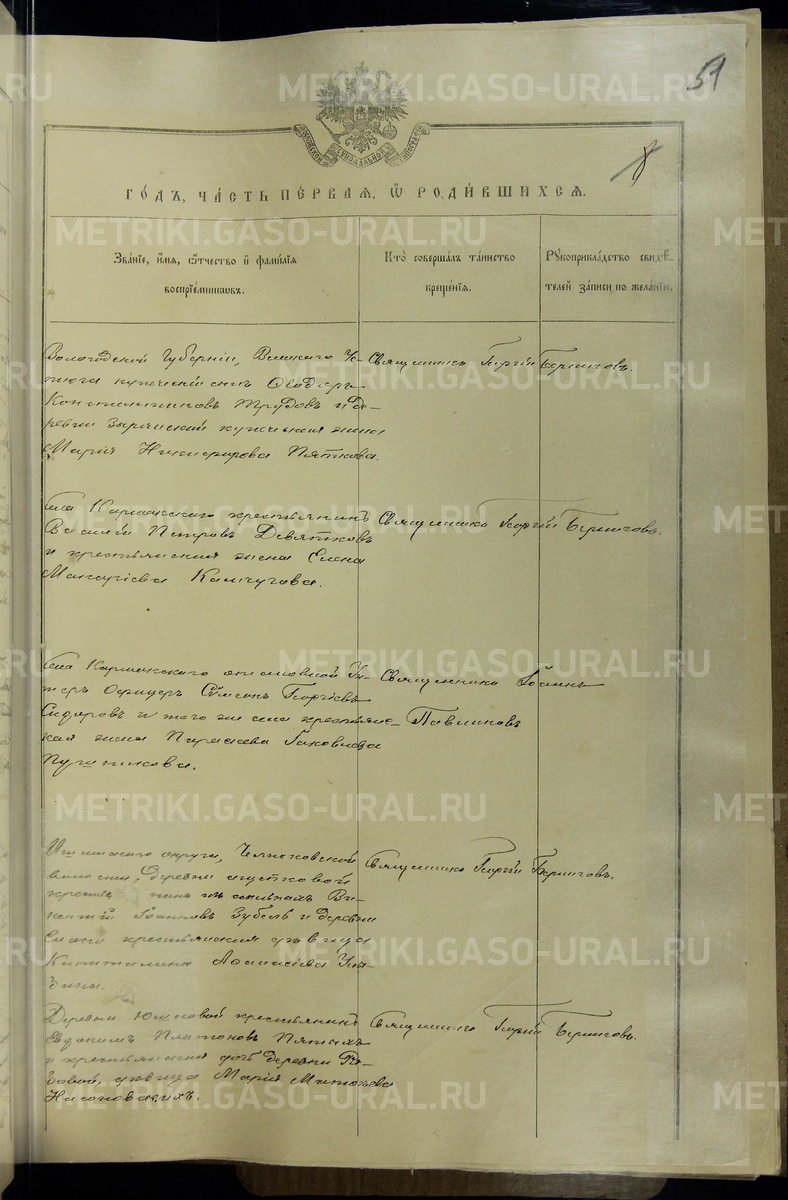 51
8
МОСКОВСКОЙ СѴНОДАЛЬНОЙ ТИПОГРАФІИ
ГО́ДЪ, ЧА́СТЬ ПЕ́РВАѦ, Ѽ РОДИ́ВШИХСѦ.
Зва́нїе, и҆́мѧ, ѻ҆́тчество и҆ фамѝлїѧ
воспрїе́мникѡвъ.
Кто̀ соверша́лъ та́инство
креще́нїѧ.
Рꙋкоприкла́дство свидѣ́-
телей за́писи по жела́нїю.
Вологодской Губерніи, Великаго Ус-
тюга купеческій сынъ Ѳеодоръ
Константиновъ Трудовъ и де-
ревни Зырянской купческая жена
Марія Никифорова Пяткова.
Священникъ Георгій Бирюковъ.
села Кармакскаго крестьянинъ
Василій Петровъ Девятковъ
и крестьянская жена Елена
Макаріева Калчугова.
Священникъ Георгій Бирюковъ.
села Кармакскаго отставной Ун-
теръ Офицеръ Сѵмеонъ Георгіевъ
Сидоровъ и того же села крестьянс-
кая жена Параскева Іаковлева
Пуганикова.
Священникъ Іоаннъ
Павлиновъ
округа,
волости, деревни
изъ ссыльныхъ Ви-
кентій Іоанновъ Зубель и деревни
крестьянская дѣвица
Капитолина Аѳанасіева
Священникъ Георгій Бирюковъ.
Деревни Юшковой крестьянинъ
Евдокимъ Платоновъ Пятыхъ
и крестьянская дочь деревни Ря-
зовой, дѣвица Марія
Насоновскихъ.
Священникъ Георгій Бирюковъ.
METRIKI.GASO-URAL.RU